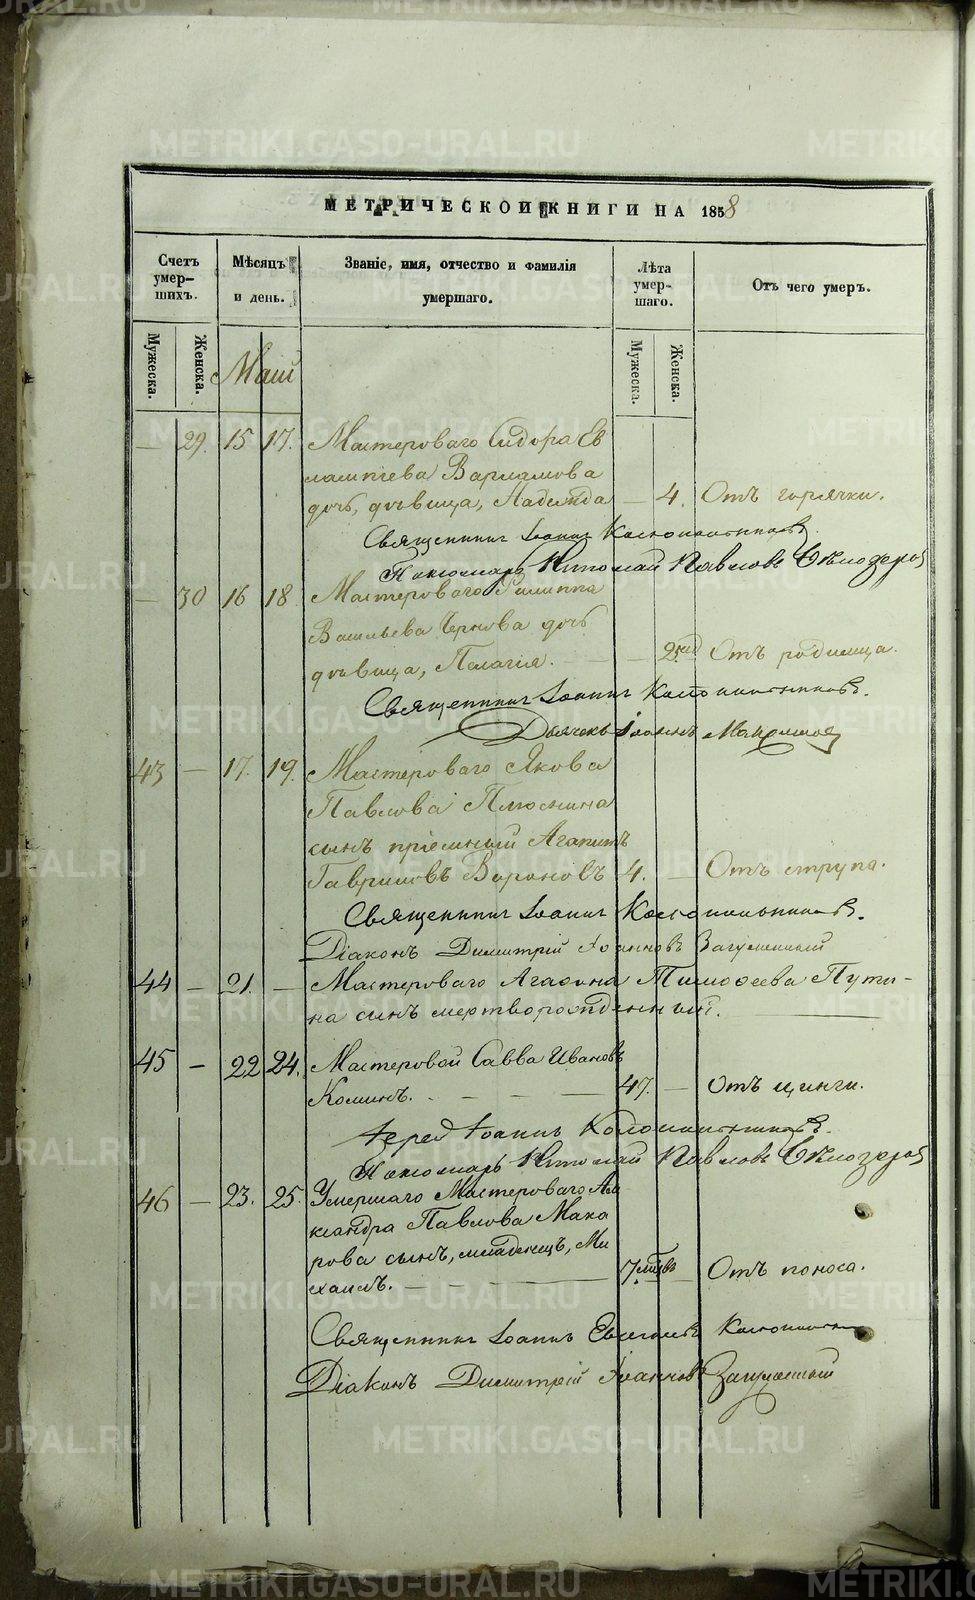 МЕТРИЧЕСКОЙ КНИГИ НА 1858
Счетъ умер-шихъ.
Мѣсяцъ и день.
Званіе, имя, отчество и фамилія умершаго.
Лѣта умер-шаго.
Отъ чего умеръ.
Мужеска.
Женска.
Маій
Мужеска.
Женска.
— 29. 15 17. Мастероваго Сидора Ев
лампіева Варламова
дочь, дѣвица, Надежда — 4. Отъ горячки.
Священникъ Іоаннъ
Пономарь Николай Павловъ Бѣлозеровъ
— 30 16 18 Мастероваго Филиппа
Васильева Чернова дочь
дѣвица, Пелагія. — Отъ родимца.
Священникъ Іоаннъ
Дьячекъ Іоаннъ
43 — 17. 19. Мастероваго Якова
Павлова Плюснина
сынъ пріемный Агапитъ
Гавриловъ Вороновъ 4. — Отъ струпа.
Священникъ Іоаннъ
Діаконъ Димитрій Іоанновъ
44 — 21. — Мастероваго Агафона Тимофеева Пути-
на сынъ мертворожденный.
45 — 22 24. Мастеровой Савва Ивановъ
Коминъ. 47. — Отъ цинги.
Іерей Іоаннъ
Пономарь Николай Павловъ Бѣлозеровъ
46 — 23. 25. Умершаго Мастероваго Але
ксандра Павлова Мака
рова сынъ, младенецъ, Ми
хаилъ. — 7 мцвъ Отъ поноса.
Священникъ Іоаннъ
Діаконъ Димитрій Іоанновъ
METRIKI.GASO-URAL.RU